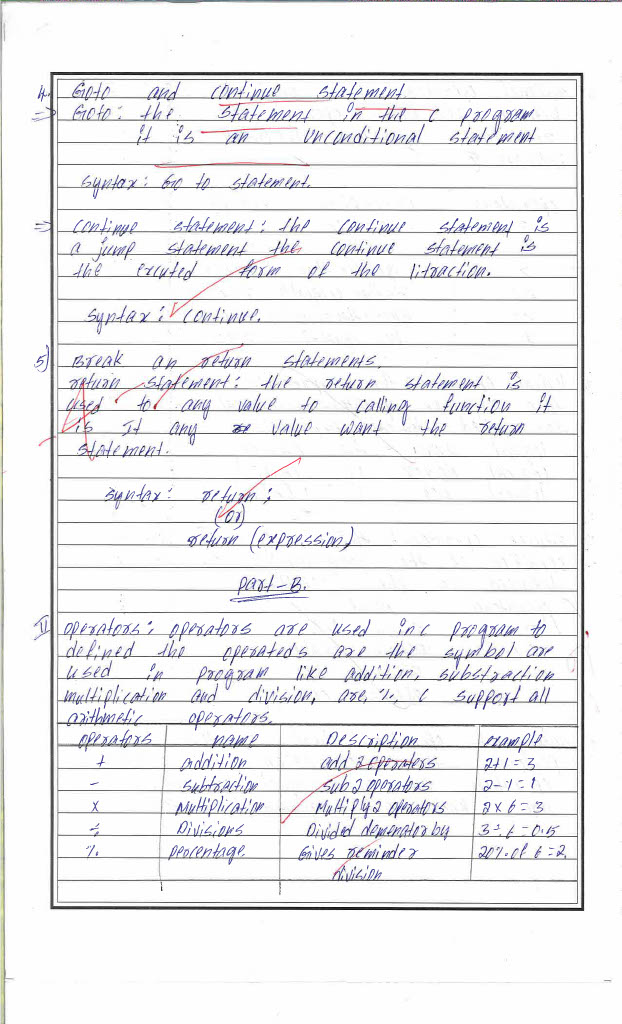 4. Goto and continue statement
⇒ Goto: the statement in the C program
it is an unconditional statement
syntax: Go to statement.
⇒ continue statement: the continue statement is
a jump statement the continue statement is
the excuted form of the litraction.
syntax: continue.
5) Break an return statements.
return statement: the return statement is
used to any value to calling function it
is It any value want the return
statement.
syntax: return;
(or)
return (expression)
part-B.
II operators: operators are used in c program to
defined the operateds are the symbol are
used in program like addition, substraction
multiplication and division, are, %, c support all
arithmetic operators.
operators name Description example
+ addition add 2 operaters 2+1=3
- subtraction sub 2 operators 2-1=1
x multiplication multiply 2 operators 2x6=3
÷ Divisions Divided demenator by 3÷6=0.5
%. percentage. Gives reminder 20%.of 6=2
division